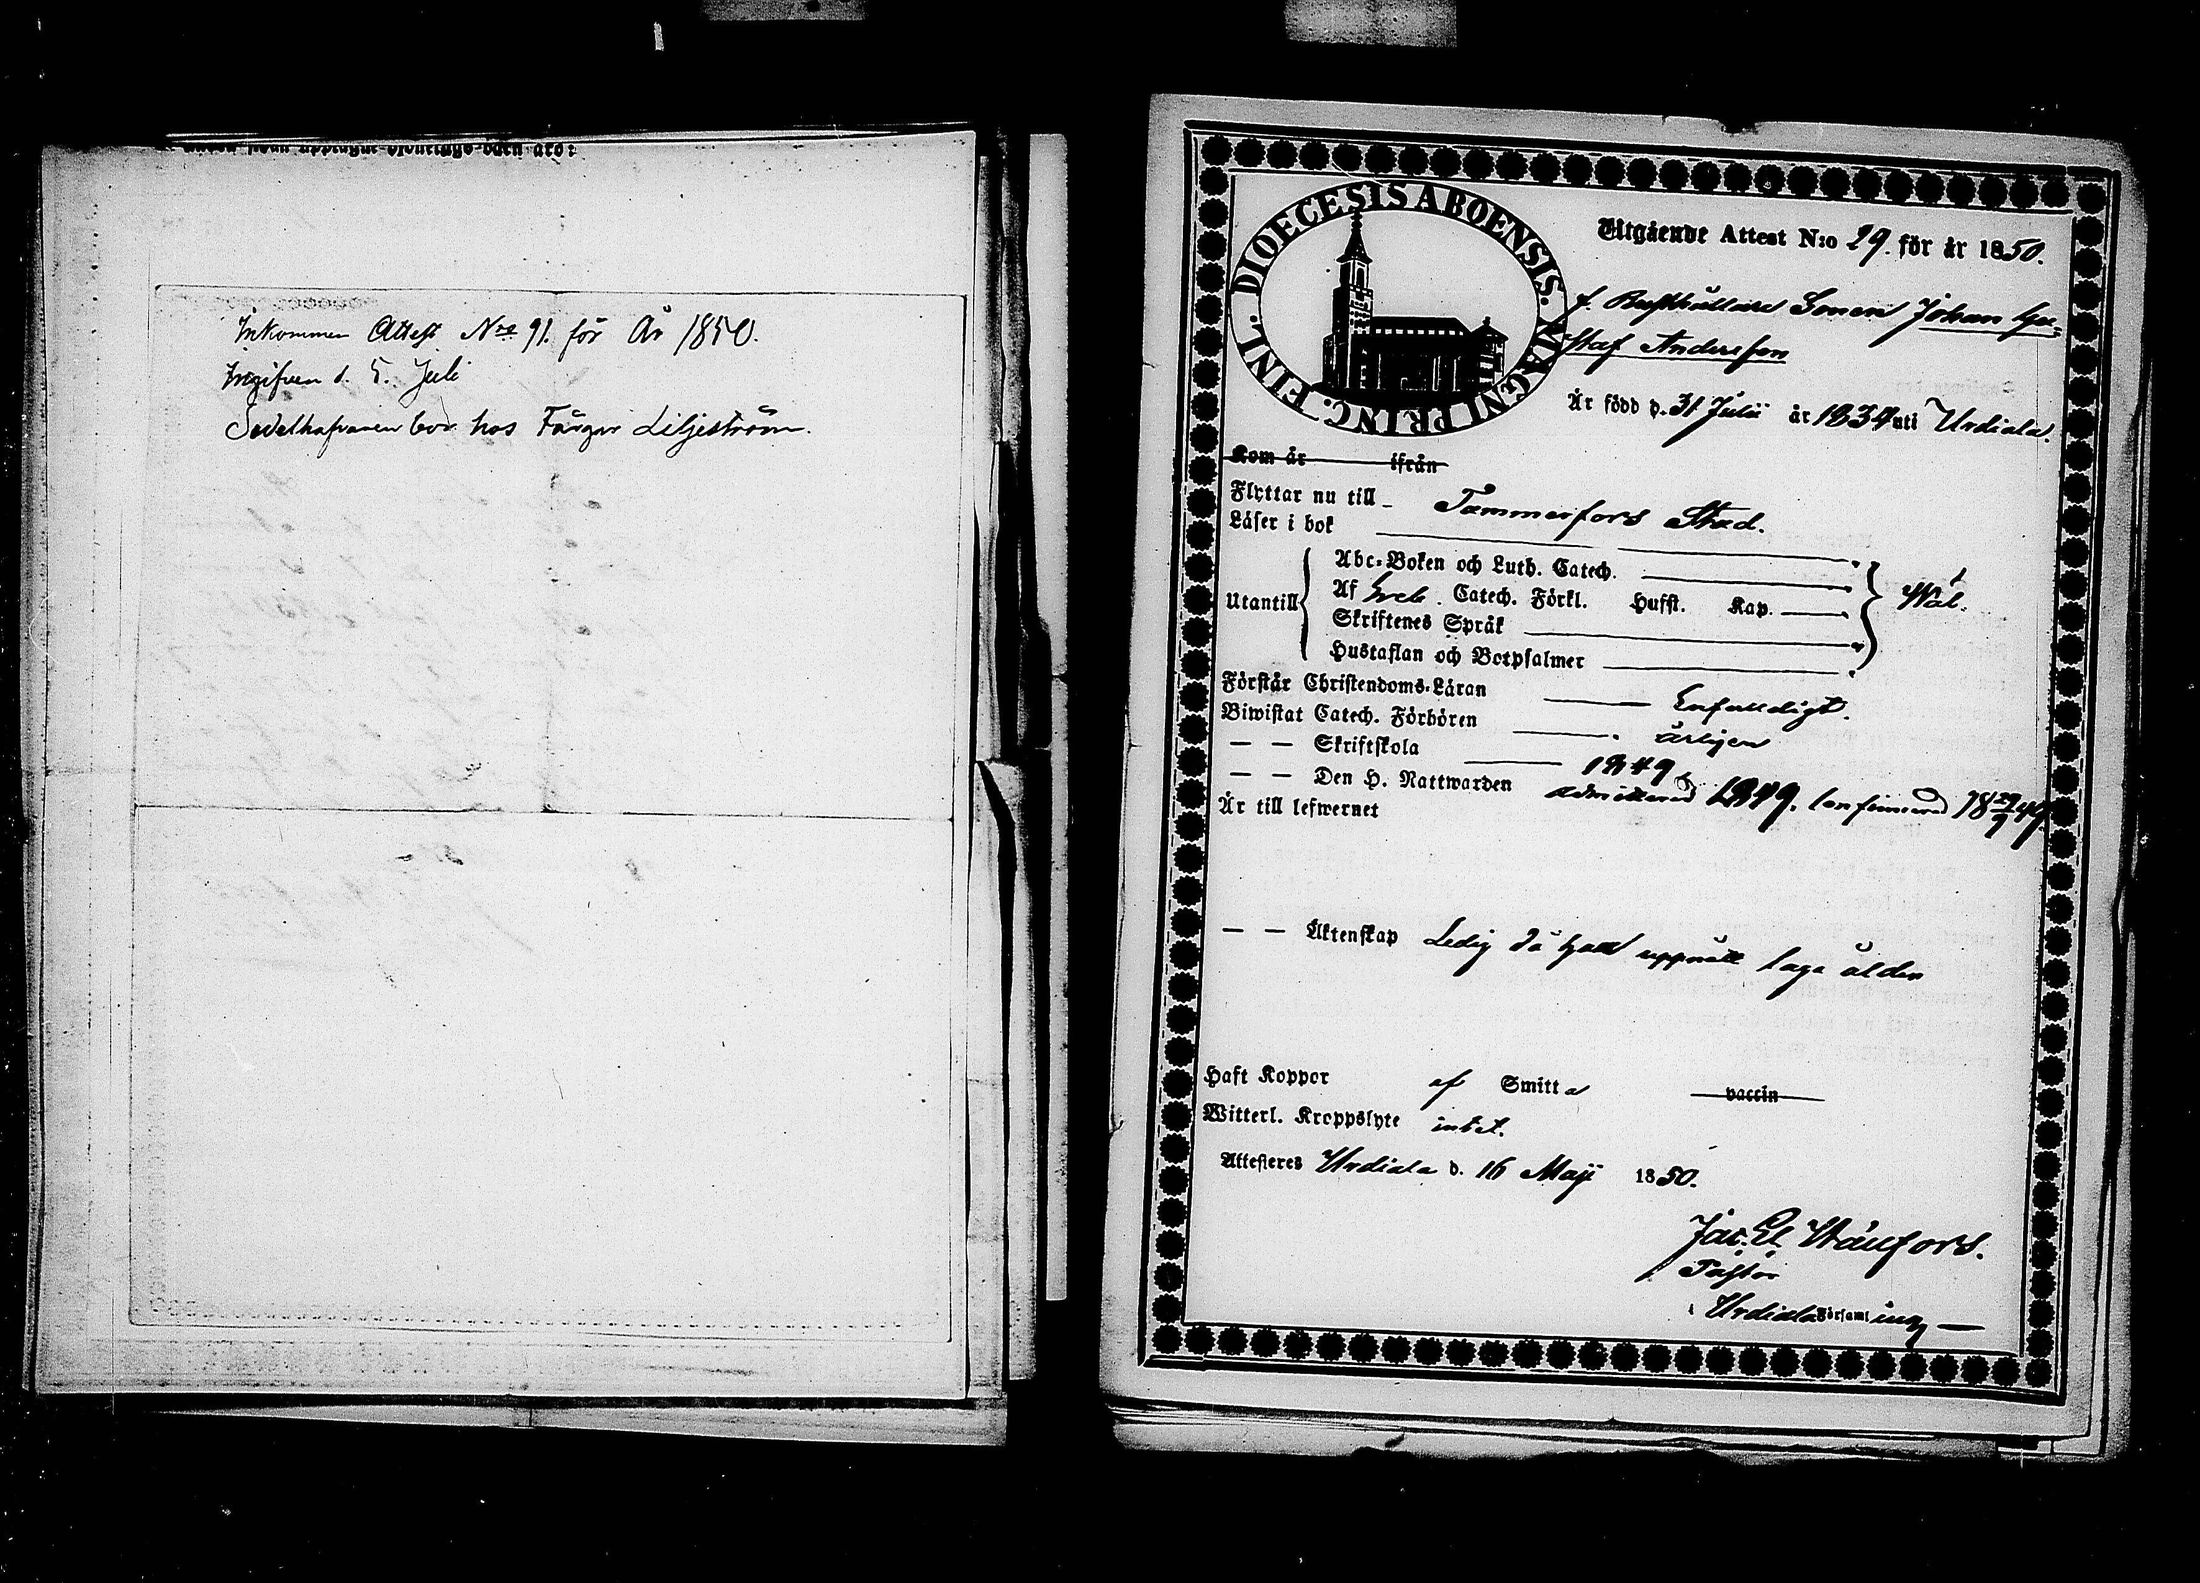 Inkommen Attest Nro 91. för År 1850.
Ingifven d. 5. Juli
Sedelhafvaren bor hos Färgar Liljeström.
DIOECESIS ABOENSIS. MAGNI PRINC. FINL.
Utgående Attest N:o 29. för år 1850.
f. Johan Gu-
staf Andersson
Är född d. 31 Julii år 1834 uti Urdiala.
Kom år ifrån
Flyttar nu till Tammerfors Stad.
Läser i bok
Utantill
Abc-Boken och Luth. Catech.
Af Catech. Förkl. Hufst. Kap.
Skriftenes Språk
Hustaflan och Botpsalmer
Wäl.
Förstår Christendoms-Läran Enfaldigt.
Biwistat Catech. Förhören årligen
— — Skriftskola 1849
— — Den H. Nattwarden admitterad 1849. confirmerad 18 29/9 49.
Är till lefwernet
— — Äktenskap Ledig då han uppnått laga ålder
Haft Koppor af Smitta vaccin
Witterl. Kroppslyte intet.
Attesteres Urdiala d. 16 Maji 1850.
Jac. El
Pastor
i Urdiala Församling —